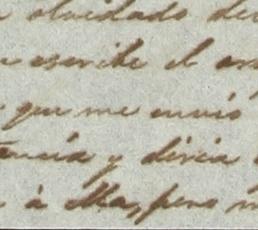 olvidado de
escribe el
que me envió
tancia y diria
à Ma, pero m